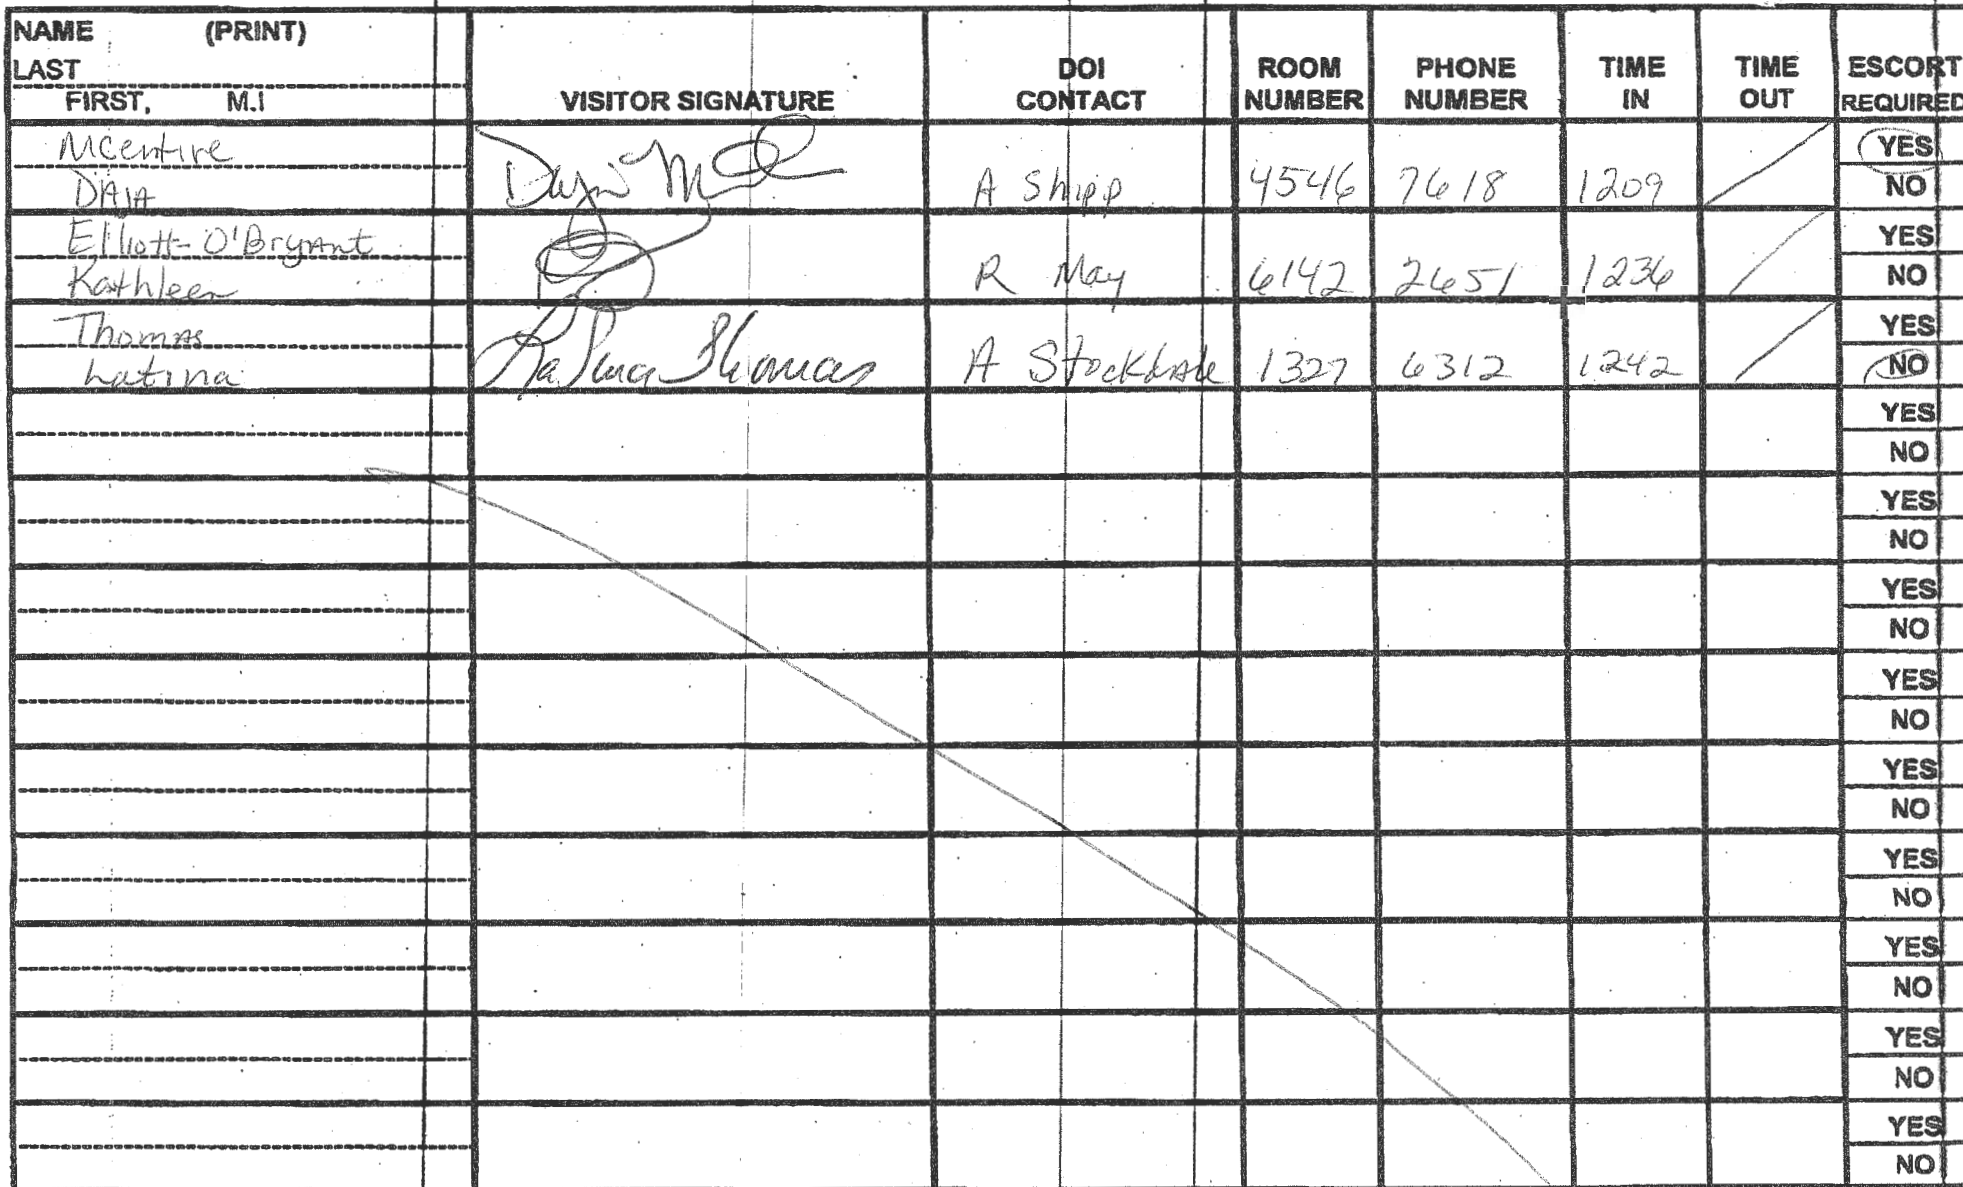 NAME (PRINT)
LAST
FIRST, M.I
VISITOR SIGNATURE
DOI
CONTACT
ROOM
NUMBER
PHONE
NUMBER
TIME
IN
TIME
OUT
ESCORT
REQUIRED
Mcentire
DAJA
A Shipp
4546
7618
1209
YES
NO
Elliott-O'Bryant
Kathleen
R May
6142
2651
1236
YES
NO
Thomas
Latina
LaTina Thomas
A Stockdale
1327
6312
1242
YES
NO
YES
NO
YES
NO
YES
NO
YES
NO
YES
NO
YES
NO
YES
NO
YES
NO
YES
NO